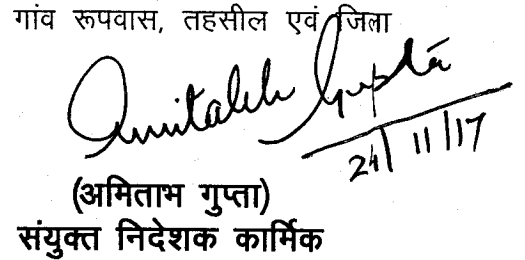 गांव रूपवास, तहसील एवं जिला
Amitabh Gupta
24/11/17
(अमिताभ गुप्ता)
संयुक्त निदेशक कार्मिक